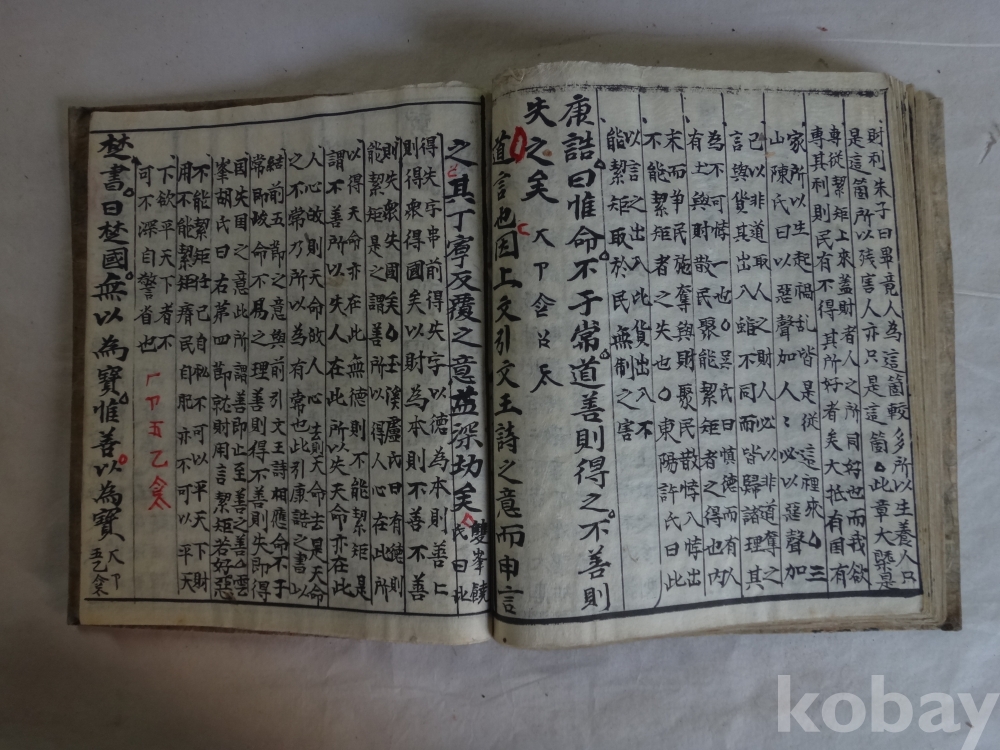 財利朱子曰畢竟人為這箇較多所以生養人只
是這箇所以殘害人亦只是這箇此章大槩是
專從絜矩上來盖財者人之所同好也而我欲
專其利則民有不得其所好者矣大抵有國有
家所以生起禍乱皆是從這裡來 三
山陳氏曰以惡聲加人人必以惡聲加
己以非道取人之財人必以非道奪之
言與貨其出入雖不同而皆歸諸理其
為不可悖一也 吳氏曰慎德而有人
有土與財散民聚能絜矩者之得也內
末而争民施奪與財聚民散悖入悖出
不能絜矩者之失也 東陽許氏曰此
以言之出入比貨出入不
能絜矩取於民無制之害
康誥曰惟命不于常道善則得之不善則
失之矣
道言也因上文引文王詩之意而申言
之其丁寧反覆之意益深切矣 雙峯饒氏曰此
得失字串前得失字以德為本則善上
則得衆得國矣以財為本則不善不善
則失衆失國矣 玉溪盧氏曰有德則
能絜矩是之謂善所以得人心在此所
以得天命亦在此無德則不能絜矩是
謂不善所以失人在此所以失天命亦在此
人心故則天命故人心去則天命去是天命
之不常乃所以為有常也此引康誥之書以
結前五節之意與前引文王詩相應命不于
常即峻命不易之理善則得不善則失即得
國失國之意此所謂善即止至善之善 雲
峯胡氏曰右第四節就財用言絜矩若好惡
不能絜矩任己自私不可以平天下財
用不能絜矩瘠民自肥亦不可以平天
下欲平天下者不
可不深自警省也
楚書曰楚國無以為寶惟善以為寶